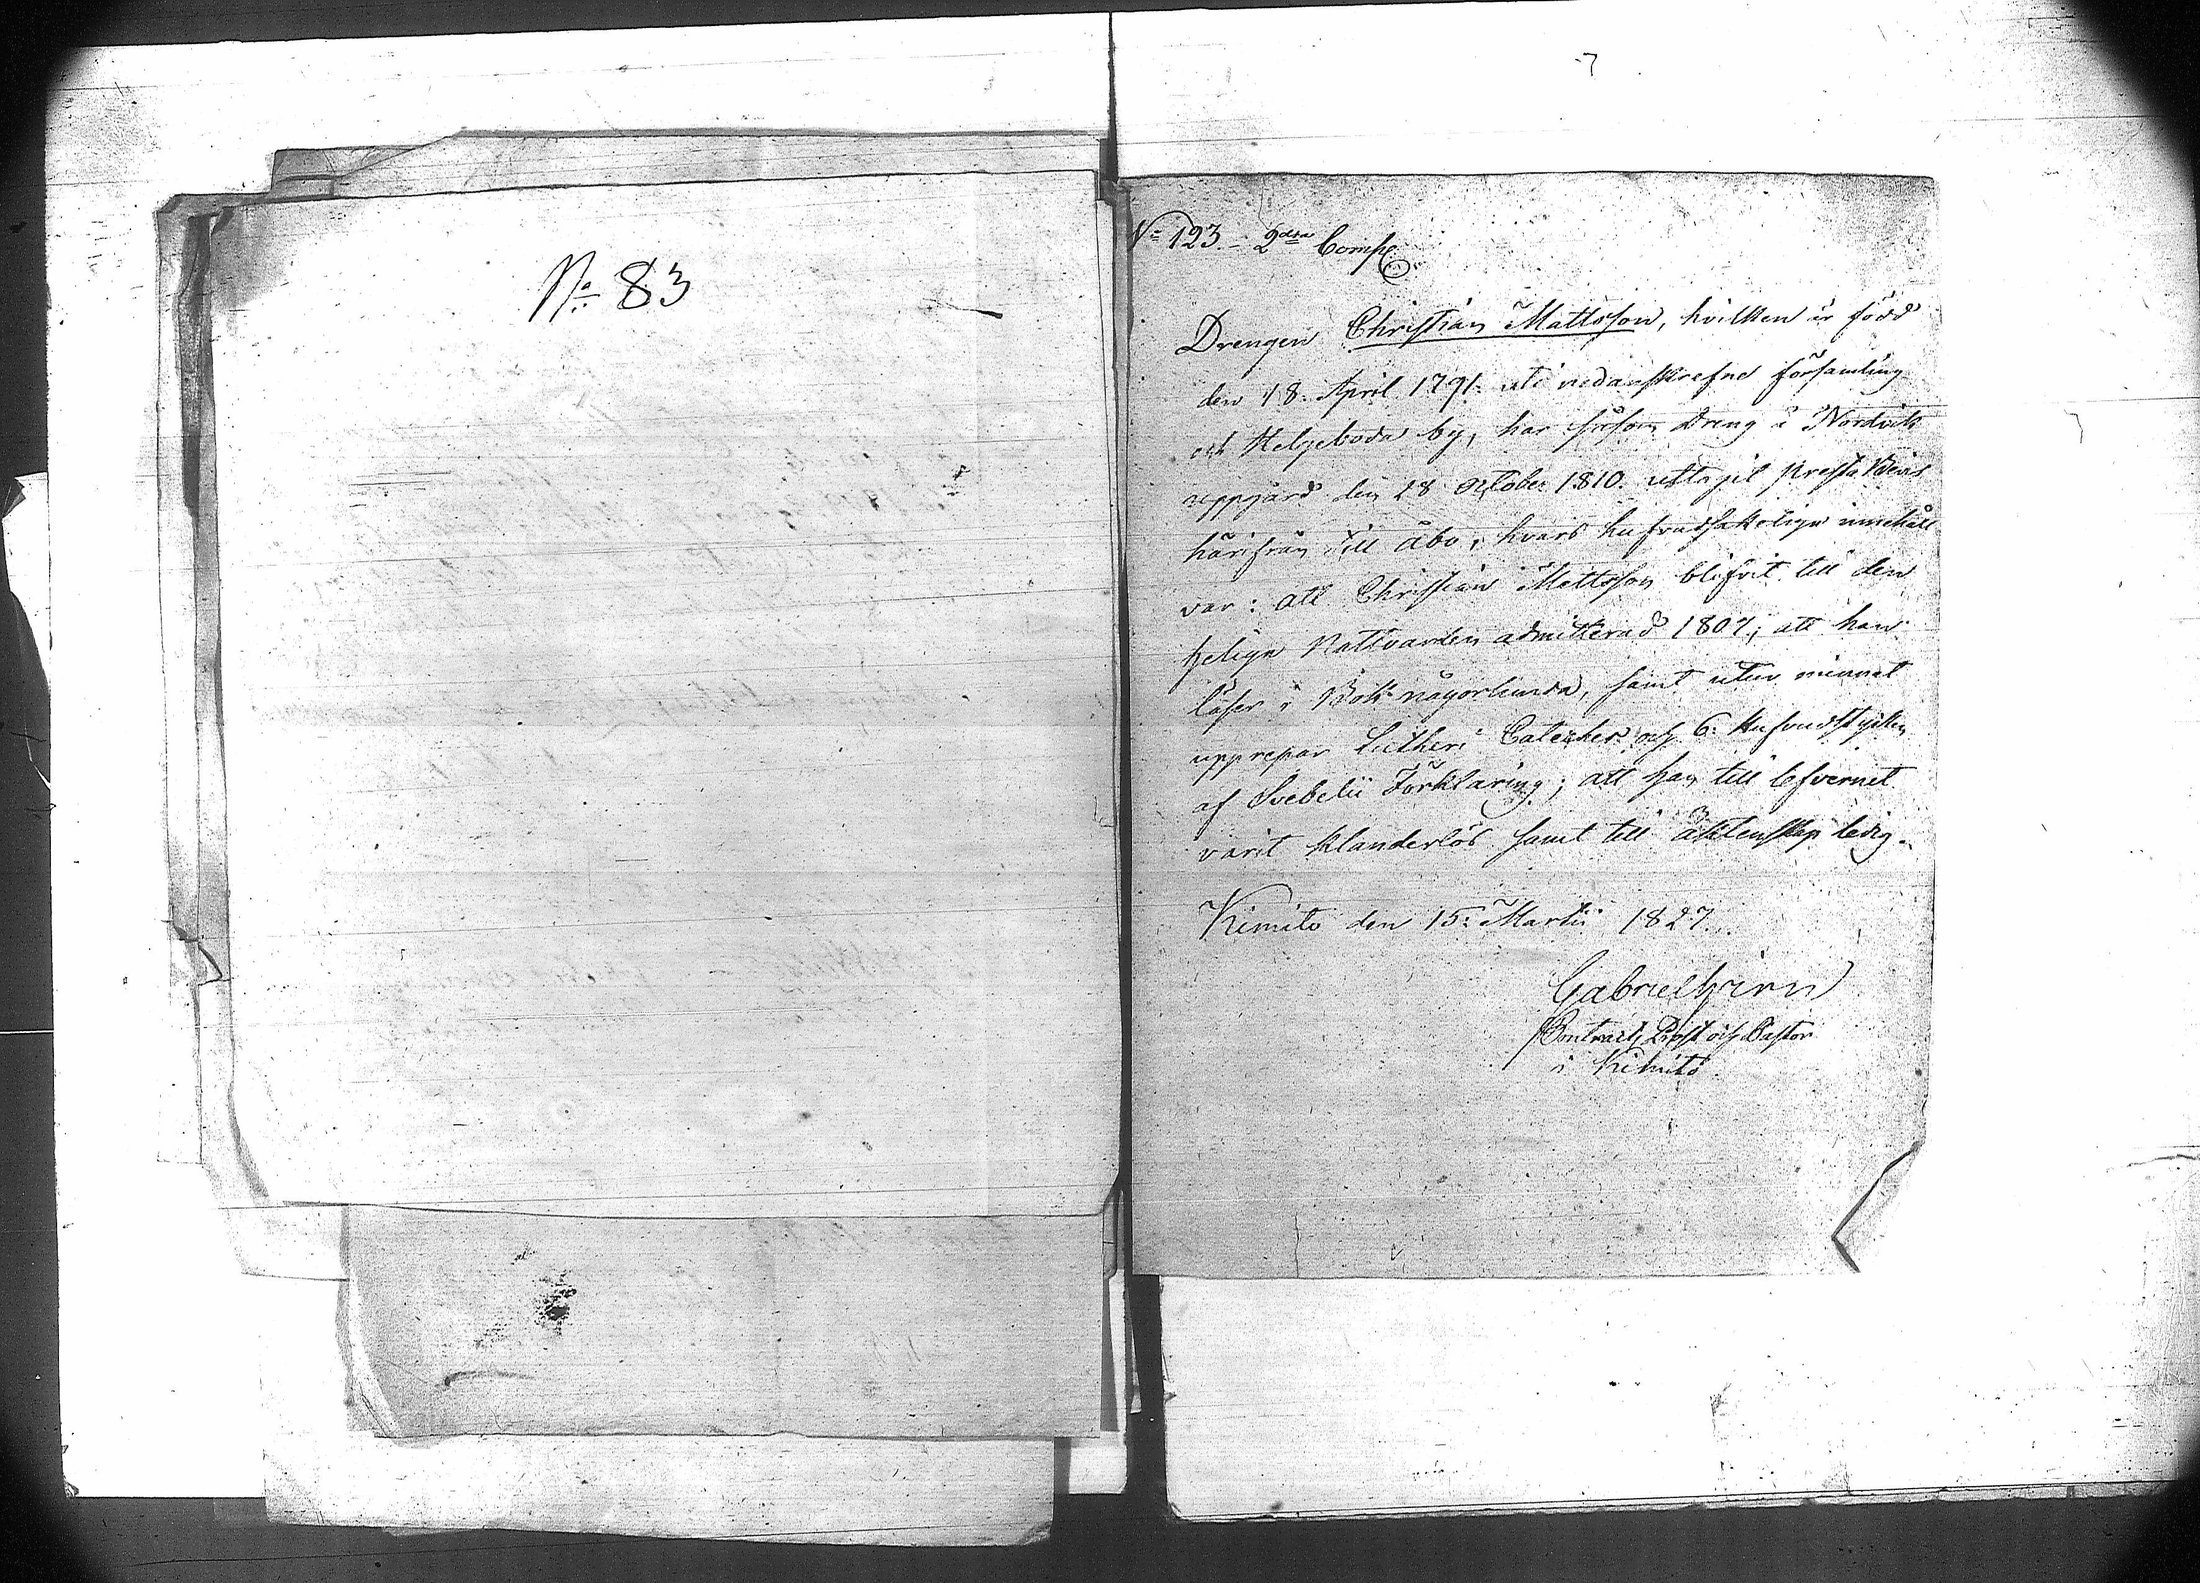 No 83
No 123. 2dra Comp.
Drengen Christian Mattsson, hvilken är född
den 18. April 1791. uti nedanskrefne församling
och Helgeboda by, har såsom Dreng i Nordvik
uppgård den 28 October 1810. uttagit Presta Bevis
härifrån till Åbo, hvars hufvudsakeliga innehåll
var: att Christian Mattsson blifvit till den
heliga Nattvarden admitterad 1807; att han
läser i Bok någorlunda, samt utur minnet
upprepar Lutheri Cateches och 6. Hufvudstycken
af Svebelii Förklaring; att han till lefvernet
varit klanderlös samt till äktenskap ledig.
Kimito den 15: Martii 1827.
Gabriel Hirn
Contracts Prost och Pastor
i Kimito.